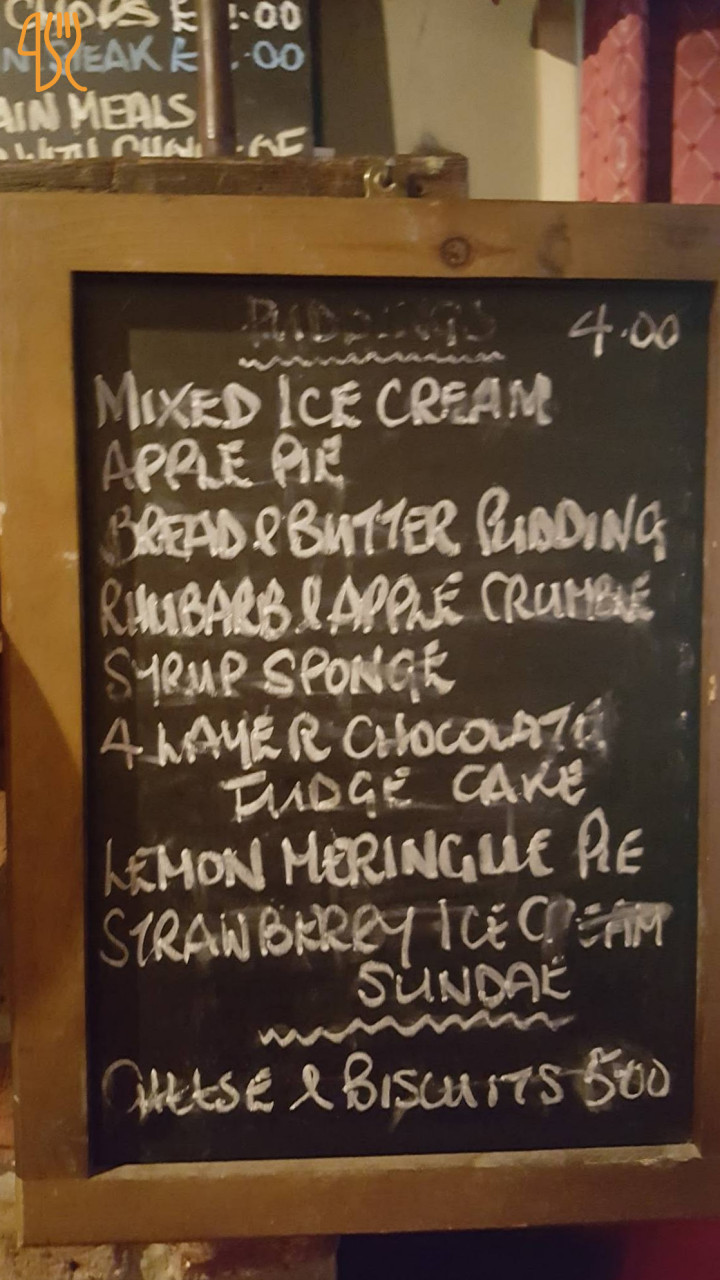 CHOPS £ .00
N STEAK £ .00
AIN MEALS
WITH CHO OF
PUDDINGS 4.00
MIXED ICE CREAM
APPLE PIE
BREAD & BUTTER PUDDING
RHUBARB & APPLE CRUMBLE
SYRUP SPONGE
4 LAYER CHOCOLATE
FUDGE CAKE
LEMON MERINGUE PIE
STRAWBERRY ICE CREAM
SUNDAE
CHEESE & BISCUITS 5.00